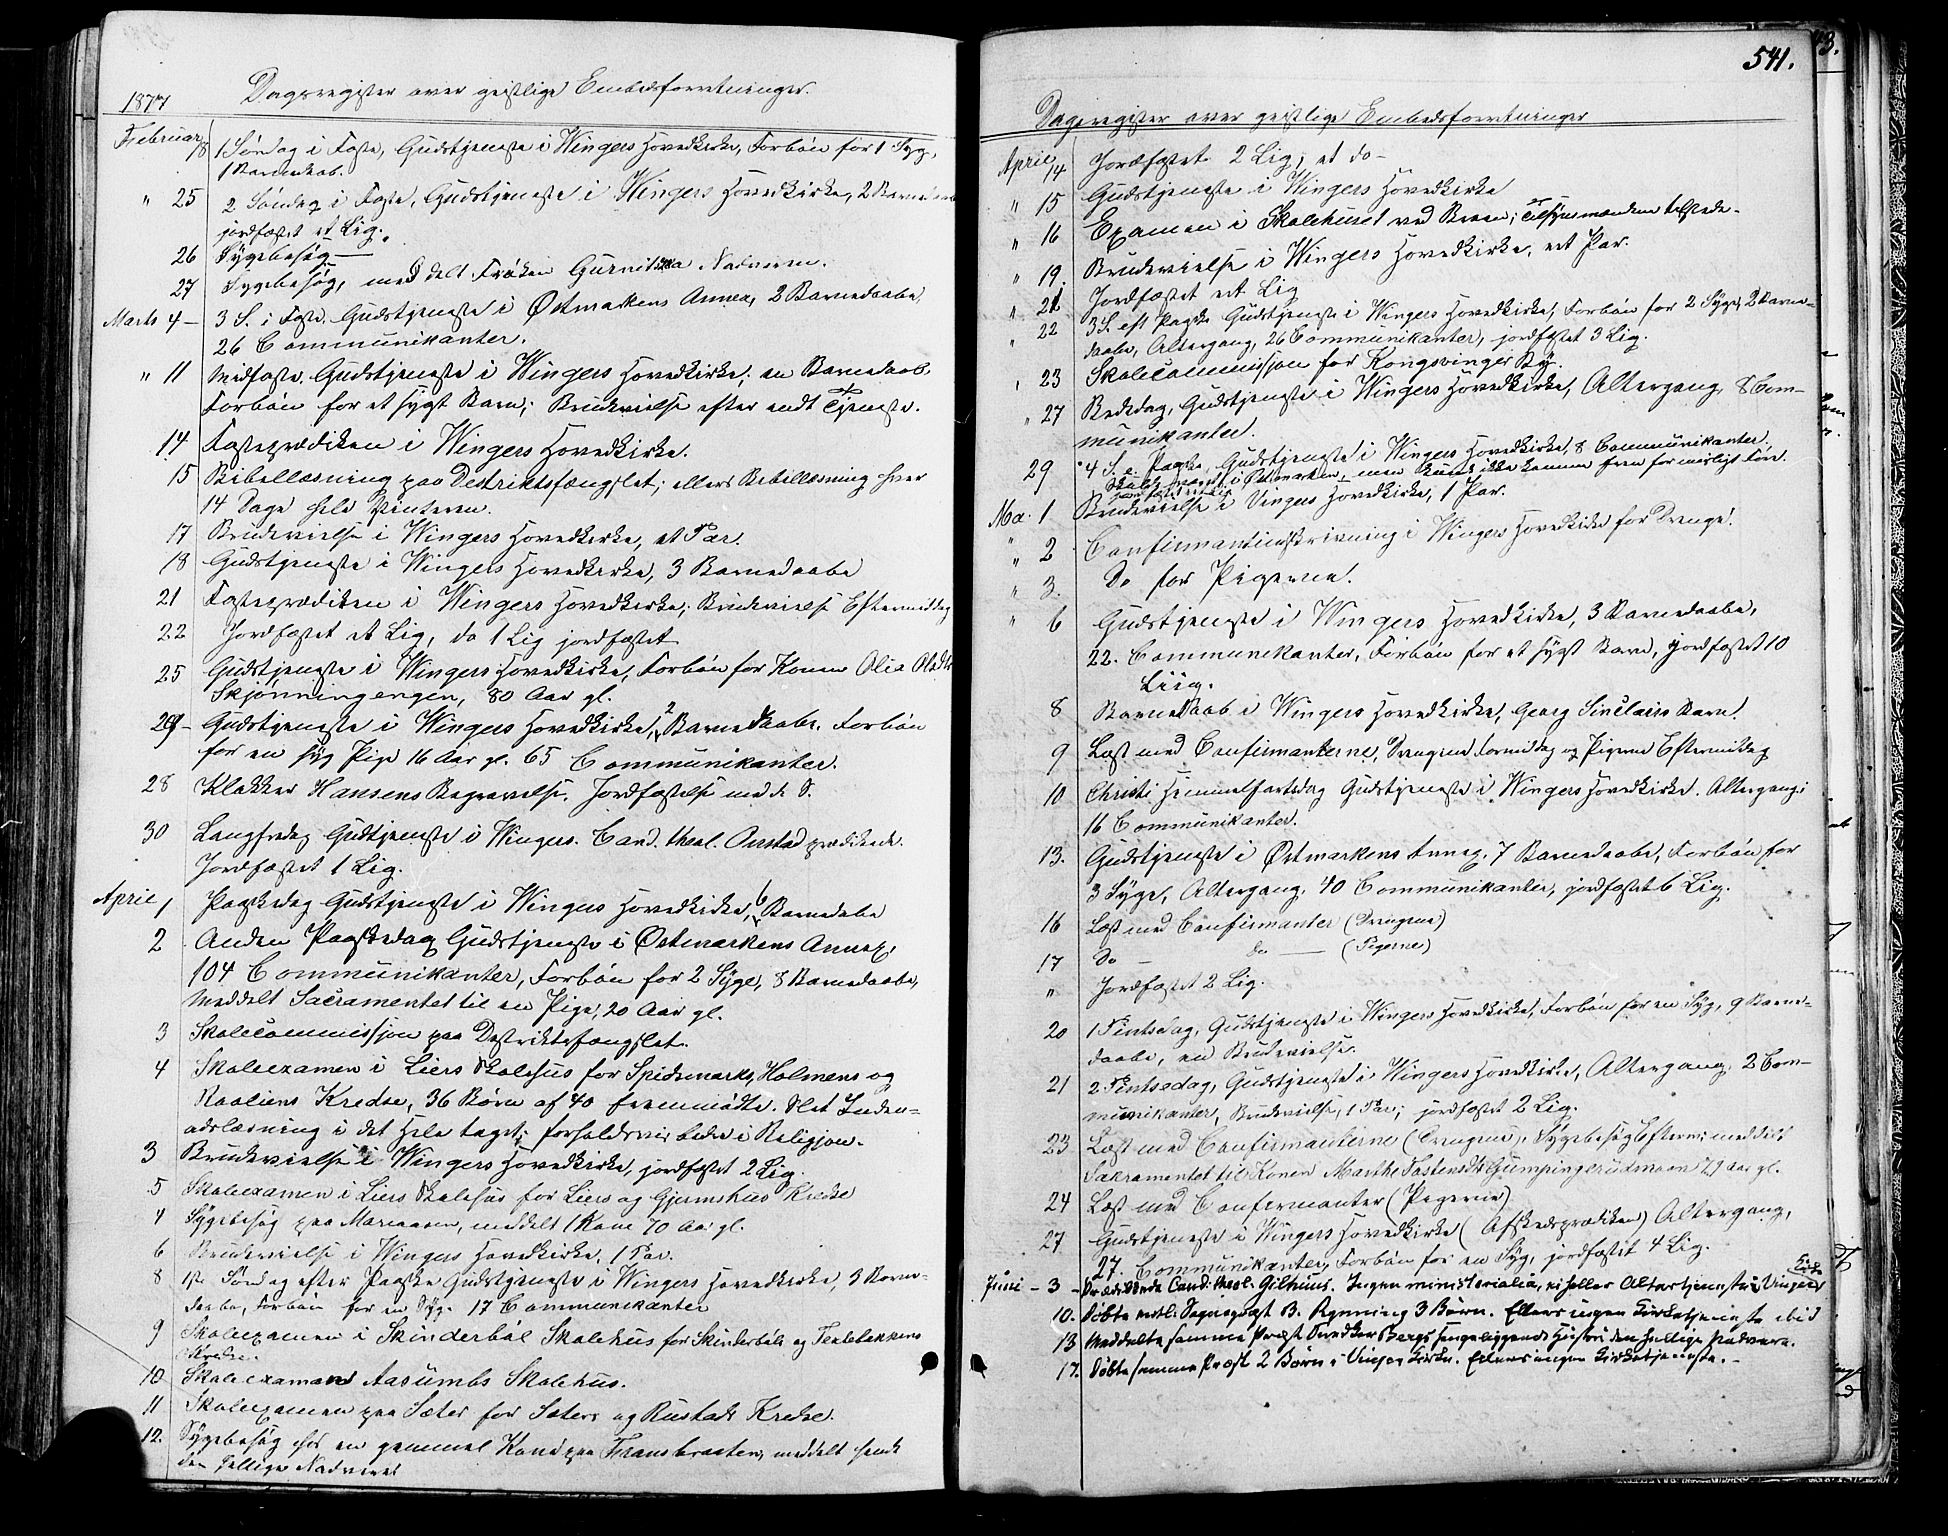 1877 Dagsregister over geistlige Embedsforretninger.
Februar 18 1 Søndag i Faste, Gudstjeneste i Wingers Hovedkirke, Forbøn for 1 Syg,
1 Barnedaab.
" 25 2 Søndag i Faste, Gudstjeneste i Wingers Hovedkirke, 2 Barnedaabe
jordfæstet et Lig.
26 Sygebesøg —
27 Sygebesøg, meddelt Frøken Nadveren.
Marts 4 — 3 S. i Faste. Gudstjeneste i Østmarkens Annex, 2 Barnedaabe,
26 Communikanter.
" 11 Midfaste. Gudstjeneste i Wingers Hovedkirke; en Barnedaab
Forbøn for et sygt Barn; Brudevielse efter endt Tjeneste.
14 Fasteprædiken i Wingers Hovedkirke.
15 Bibellæsning paa Destriktsfængslet; ellers Bibellæsning hver
14 Dage hele Vinteren.
17 Brudevielse i Wingers Hovedkirke, et Par.
18 Gudstjeneste i Wingers Hovedkirke, 3 Barnedaabe
21 Fasteprædiken i Wingers Hovedkirke; Brudevielse Eftermiddag
22 Jordfæstet et Lig, do 1 Lig jordfæstet
25 Gudstjeneste i Wingers Hovedkirke, Forbøn for Konen Olia
Skjønningengen, 80 Aar gl.
29 — Gudstjeneste i Wingers Hovedkirke, 2 Barnedaabe. Forbøn
for en syg Pige 16 Aar gl. 65 Communikanter.
28 Klokker Hansens Begravelse. Jordfæstelse med
30 Langfredag Gudtjeneste i Wingers. Cand. theol. prædikede.
Jordfæstet 1 Lig.
April 1 Paaskedag Gudstjeneste i Wingers Hovedkirke, 6 Barnedabe
2 Anden Paaskedag Gudstjeneste i Østmarkens Annex,
104 Communikanter, Forbøn for 2 Syge, 8 Barnedaabe,
Meddelt Sacramentet til en Pige, 20 Aar gl.
3 Skolecommissjon paa Destriktsfængslet.
4 Skoleexamen i Liers Skolehus for Spidsmarks, Holmens og
Kredse, 36 Børn af 40 fremmødte. Slet Inden-
adslæsning i det Hele taget; forholdsvis bedre i Religjon.
3 Brudevielse i Wingers Hovedkirke, jordfæstet 2 Lig.
5 Skoleexamen i Liers Skolehus for Liers og Gjemshus Kredse
4 Sygebesøg paa meddelt 1 Kone 70 Aar gl.
6 Brudevielse i Wingers Hovedkirke, 1 Par.
8 1ste Søndag efter Paaske Gudstjeneste i Wingers Hovedkirke, 3 Barne-
daabe, Forbøn for en Syg. 17 Communikanter
9 Skoleexamen i Skinderbøl Skolehus for Skinderbøls og
Kredse.
10 Skoleexamen Aasumbs Skolehus.
11 Skoleexamen paa Sæter for Sæters og Rustads Kredse.
12. Sygebesøg hos en gammel Kone paa meddelt hende
den hellige Nadvere
541.
Dagsregister over geistlige Embedsforretninger
April 14 Jordfæstet 2 Lig, et do —
" 15 Gudstjeneste i Wingers Hovedkirke
" 16 Examen i Skolehuset ved Broen; Tilsynsmændene tilstede.
" 19. Brudevielse i Wingers Hovedkirke, et Par.
" 21 Jordfæstet et Lig
" 22 3 S. eft Paaske Gudstjeneste i Wingers Hovedkirke, Forbøn for 2 Syge, 2 Barne-
daabe, Altergang, 26 Communikanter, jordfæstet 3 Lig.
" 23 Skolecommissjon for Kongsvinger By.
" 27 Bededag, Gudstjeneste i Wingers Hovedkirke, Altergang, 8 Com-
munikanter.
29 4 S. e. Paaske, Gudstjeneste i Wingers Hovedkirke, 8 Communikanter.
Skulde været i Østmarken, men kunde ikke komme frem formedelst Føre.
Ma. 1 Brudevielse i Vingers Hovedkirke, 1 Par.
" 2 Confirmantindskrivning i Wingers Hovedkirke for Drenge.
" 3. Do for Pigerne.
" 6 Gudstjeneste i Wingers Hovedkirke, 3 Barnedaabe,
22. Communikanter, Forbøn for et sygt Barn, jordfæstet 10
Liig.
8 Barnedaab i Wingers Hovedkirke, Georg Sinclairs Barn.
9 Læst med Confirmanterne, Drengene Formiddag og Pigerne Eftermiddag
10 Christi Himmelfartsdag Gudstjeneste i Wingers Hovedkirke. Altergang;
16 Communikanter.
13. Gudstjeneste i Østmarkens Annex, 7 Barnedaabe, Forbøn for
3 Syge, Altergang, 40 Communikanter, jordfæstet 6 Lig.
16 Læst med Confirmanter (Drengene)
17 Do — do — (Pigerne)
" Jordfæstet 2 Lig.
20 1 Pintsdag, Gudstjeneste i Wingers Hovedkirke, Forbøn for en Syg, 9 Barne-
daabe, en Brudevielse.
21 2 Pintsedag, Gudstjeneste i Wingers Hovedkirke, Altergang, 2 Com-
munikanter, Brudevielse, 1 Par; jordfæstet 2 Lig.
23 Læst med Confirmanterne (Drengene), Sygebesøg Efterm; meddelt
Sacramentet til Konen Marthe 79 Aar gl.
24 Læst med Confermanter (Pigerne)
27 Gudstjeneste i Wingers Hovedkirke (Afskedsprædiken) Altergang,
27. Communikanter, Forbøn for en Syg, jordfæstet 4 Lig.
Juni — 3 — Prædikede Cand. theol. Gilhuus. Ingen ministerialia, ei heller Altertjeneste i Vingers Kirke
10. Døbte estl. Sognepræst B. Rynning 3 Børn. Ellers ingen Kirketjeneste ibid
13 Meddelte samme Præst Snedker Bergs sengeliggende Hustru den hellige Nadvere.
17. Døbte samme Præst 2 Børn i Vinger Kirke. Ellers ingen Kirketjeneste. —